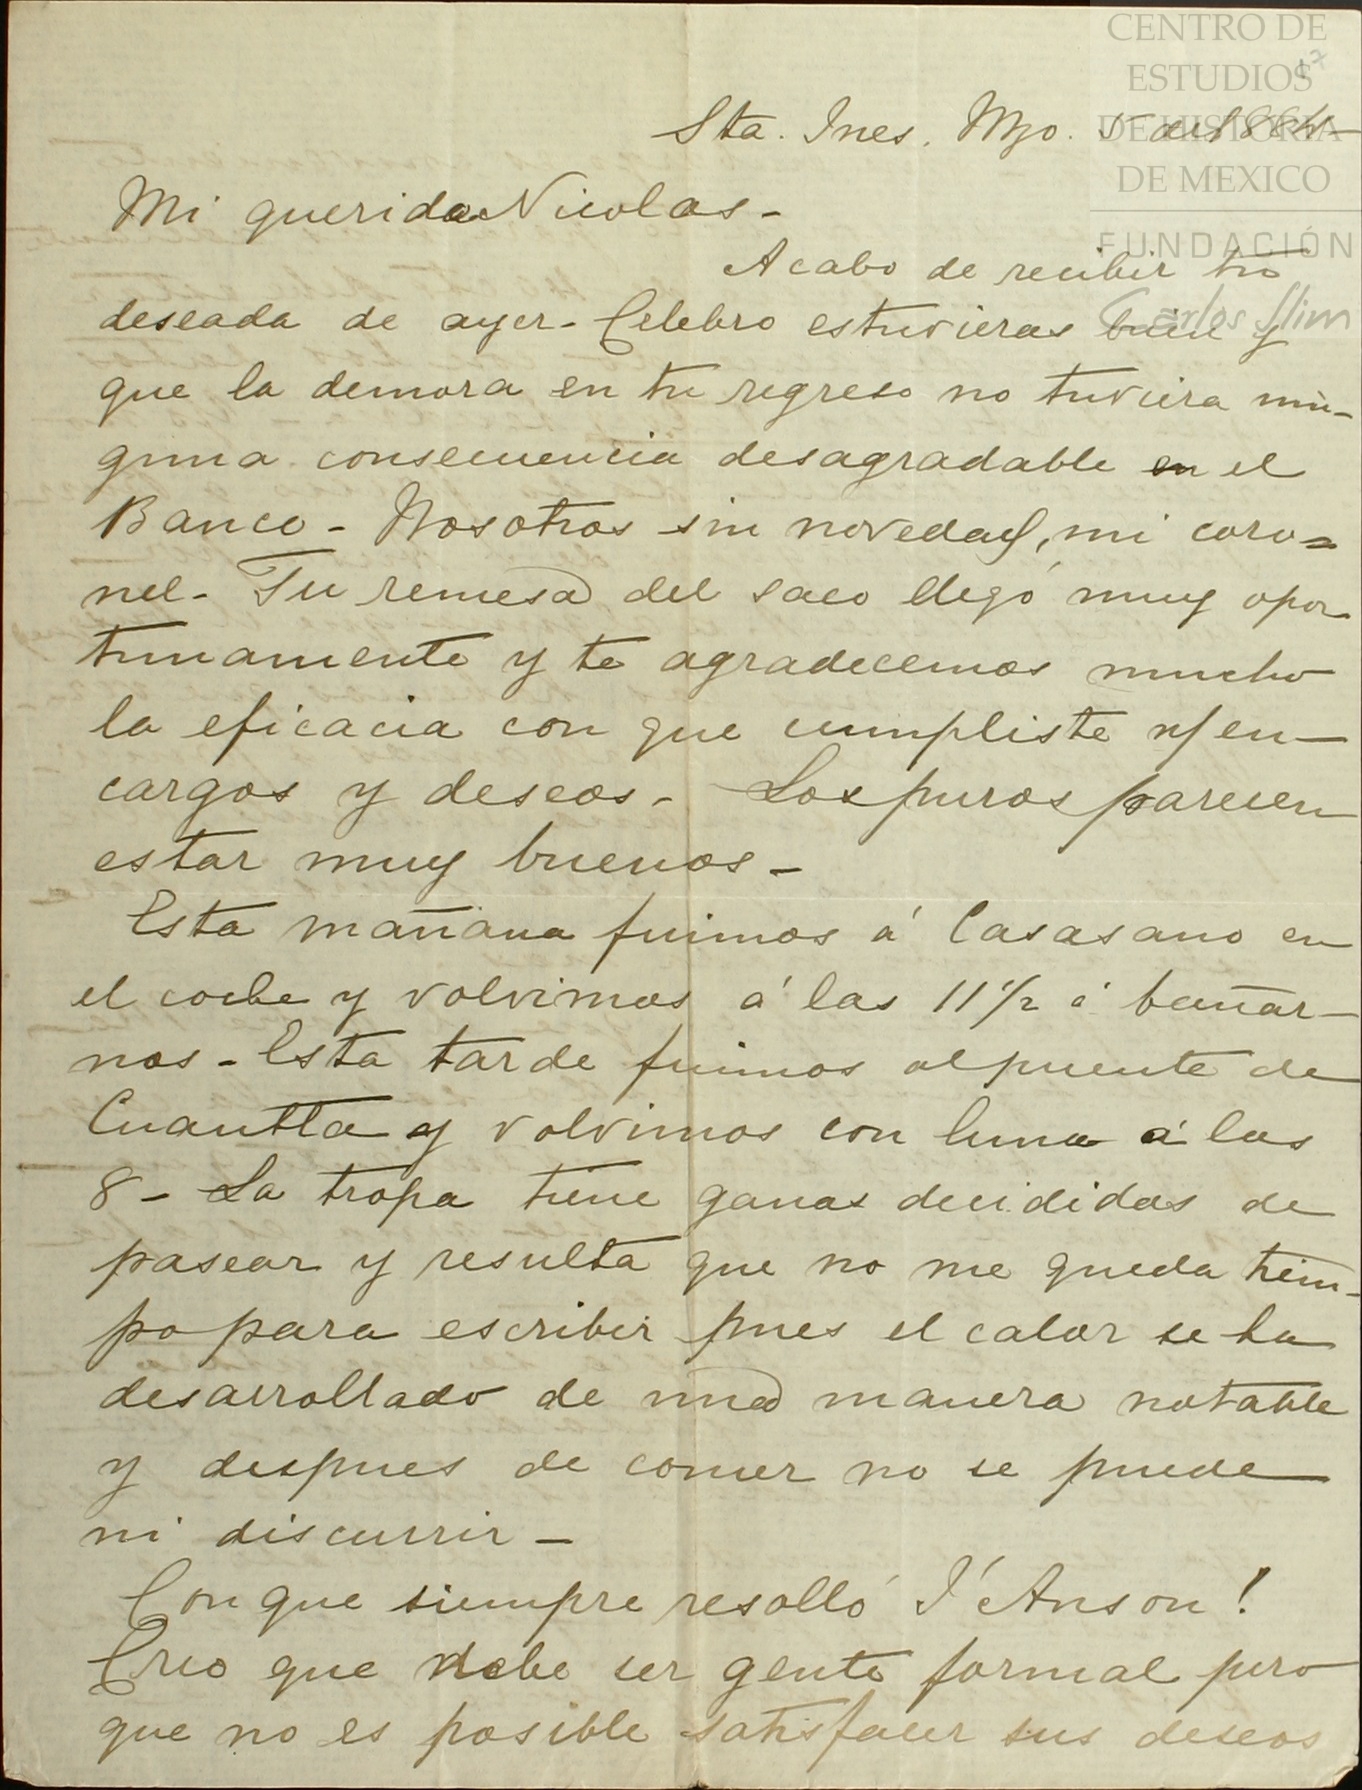 CENTRO DE
ESTUDIOS
DE HISTORIA
DE MEXICO
FUNDACIÓN
Carlos Slim
17
Sta. Ines. Mzo. 5 de 1884
Mi querido Nicolas -
Acabo de recibir tu
deseada de ayer - Celebro estuvieras bien y
que la demora en tu regreso no tuviera nin-
guna consecuencia desagradable en el
Banco - Nosotros sin novedad, mi coro=
nel - Tu remesa del saco llegó muy opor
tunamente y te agradecemos mucho
la eficacia con que cumpliste n/ en-
cargos y deseos - Los puros parecen
estar muy buenos -
Esta mañana fuimos á Casasano en
el coche y volvimos á las 11 1/2 á bañar-
nos - Esta tarde fuimos al puente de
Cuautla y volvimos con luna á las
8 - La tropa tiene ganas decididas de
pasear y resulta que no me queda tiem-
po para escribir pues el calor se ha
desarrollado de una manera notable
y despues de comer no se puede
ni discurrir -
Con que siempre resolló I'Anson!
Creo que debe ser gente formal pero
que no es posible satisfacer sus deseos